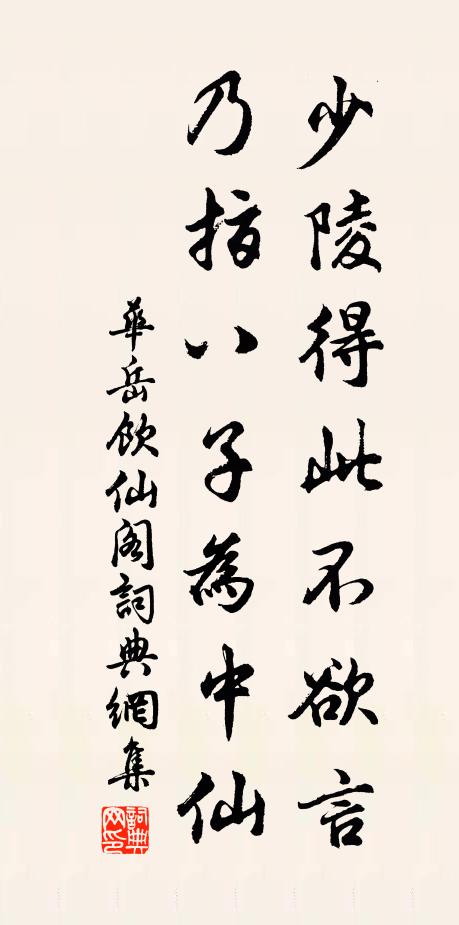 少陵得此不欲言
乃指八子為中仙
華岳飲仙閣詞典網集
詞典網印